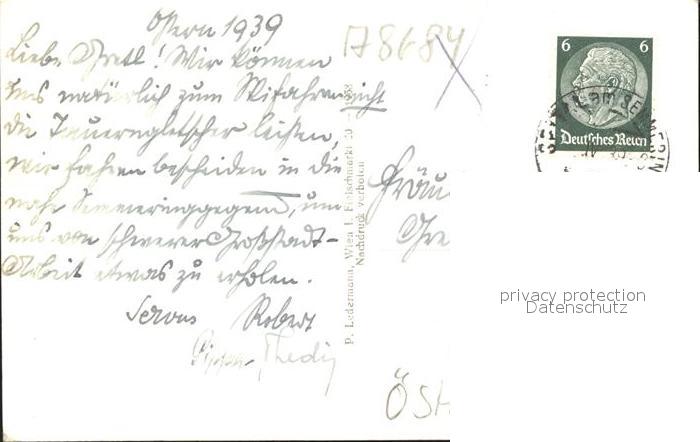 Ostern 1939
Liebe Gretl! Wir können
uns natürlich zum Skifahren nicht
die Tauerngletscher leisten,
wir fahren bescheiden in die
nahe Semmeringgegend, um
uns von schwerer Großstadt-
Arbeit etwas zu erholen.
Servus Robert
A8684
P. Ledermann, Wien I, Fleischmarkt 20 - 1938
Nachdruck verboten
6 6
Deutsches Reich
Fräu
Gre
privacy protection
Datenschutz
ÖSt